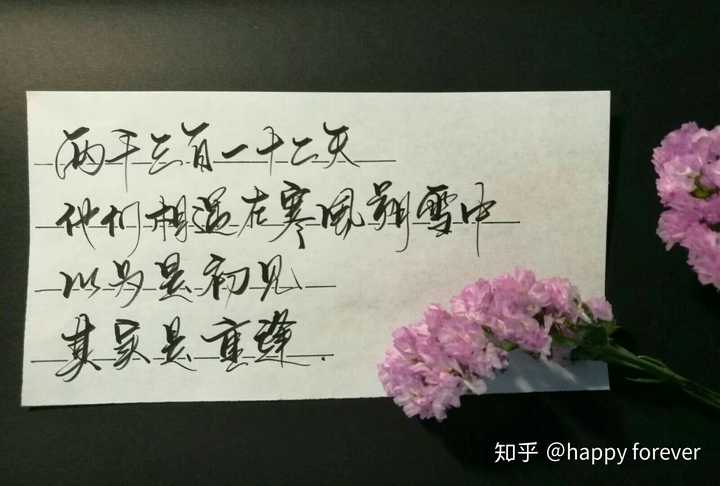 两千三百一十二天
他们相遇在寒风朔雪中
以为是初见
其实是重逢.
知乎 @happy forever